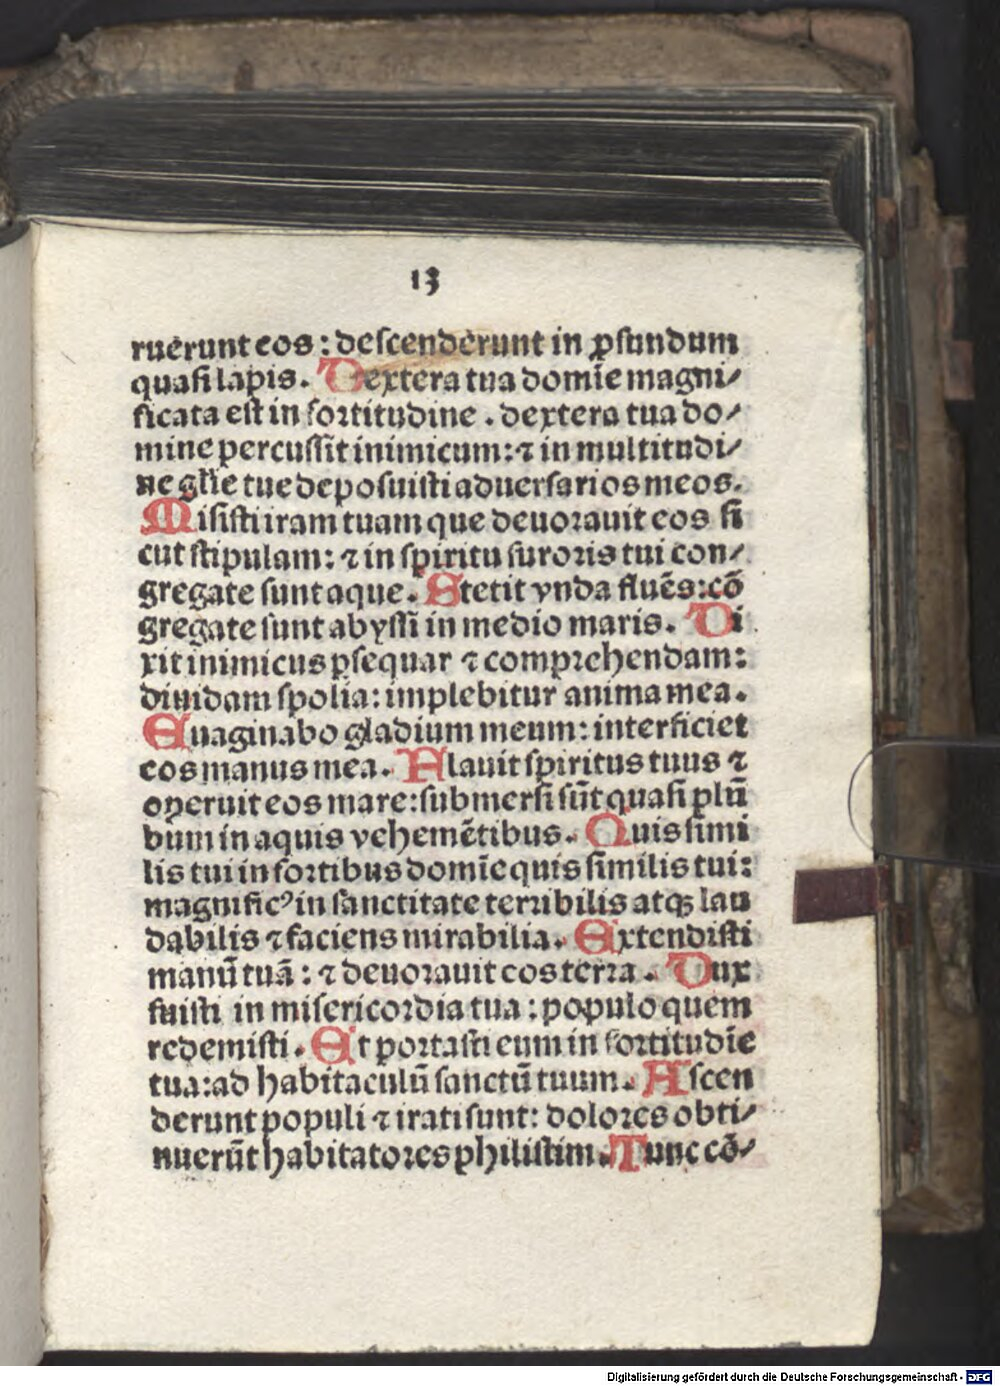 13
ruerunt eos : descenderunt in ꝓfundum
quasi lapis . Dextera tua domīe magni⸗
ficata est in fortitudine . dextera tua do⸗
mine percussit inimicum: ⁊ in multitudi⸗
ne gl̄ie tue deposuisti aduersarios meos.
Misisti iram tuam que deuorauit eos si
cut stipulam: ⁊ in spiritu furoris tui con⸗
gregate sunt aque . Stetit vnda fluēs:cō
gregate sunt abyssi in medio maris . Di
xit inimicus ꝑsequar ⁊ comprehendam:
diuidam spolia: implebitur anima mea .
Euaginabo gladium meum: interficiet
eos manus mea . Flauit spiritus tuus ⁊
operuit eos mare:submersi sūt quasi plū
bum in aquis vehemētibus . Quis simi
lis tui in fortibus domīe quis similis tui:
magnificꝰ in sanctitate terribilis atqꝫ lau
dabilis ⁊ faciens mirabilia . Extendisti
manū tuā : ⁊ deuorauit eos terra . Dux
fuisti in misericordia tua : populo quem
redemisti . Et portasti eum in fortitudīe
tua:ad habitaculū sanctū tuum . Ascen
derunt populi ⁊ irati sunt: dolores obti⸗
nuerūt habitatores philistim . Tunc cō⸗
Digitalisierung gefördert durch die Deutsche Forschungsgemeinschaft - DFG